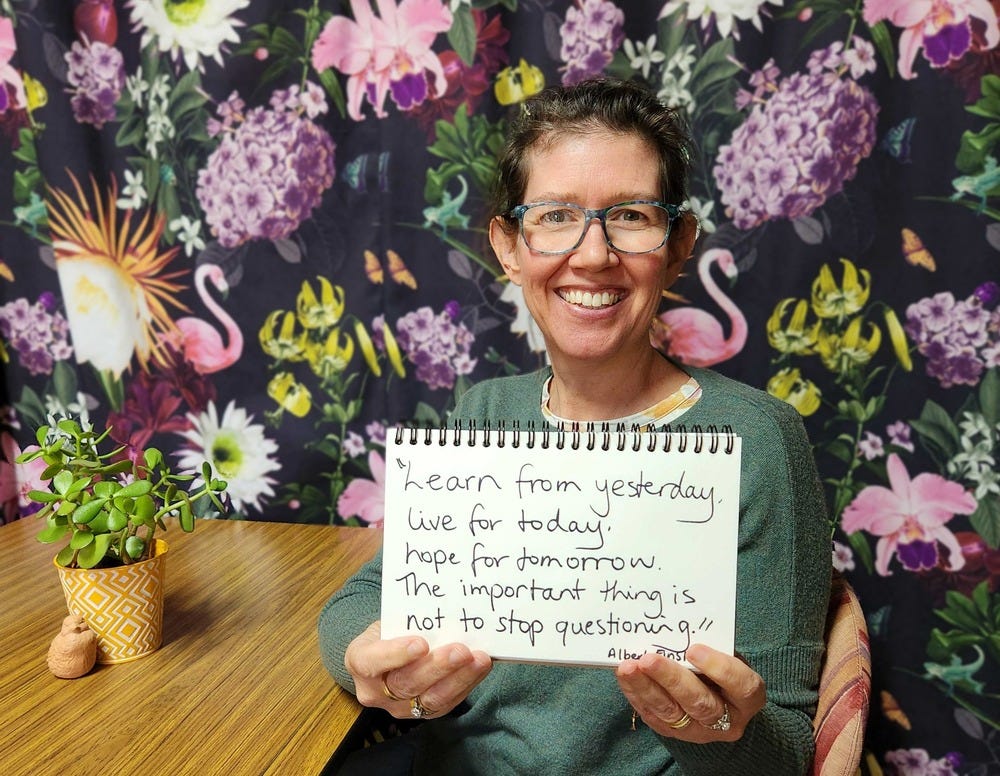 "Learn from yesterday,
live for today,
hope for tomorrow.
The important thing is
not to stop questioning."
Albert Einst